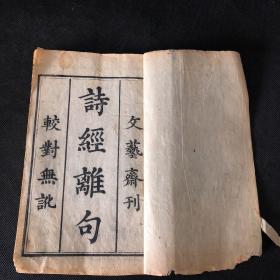 文藝齋刊
詩經離句
較對無訛